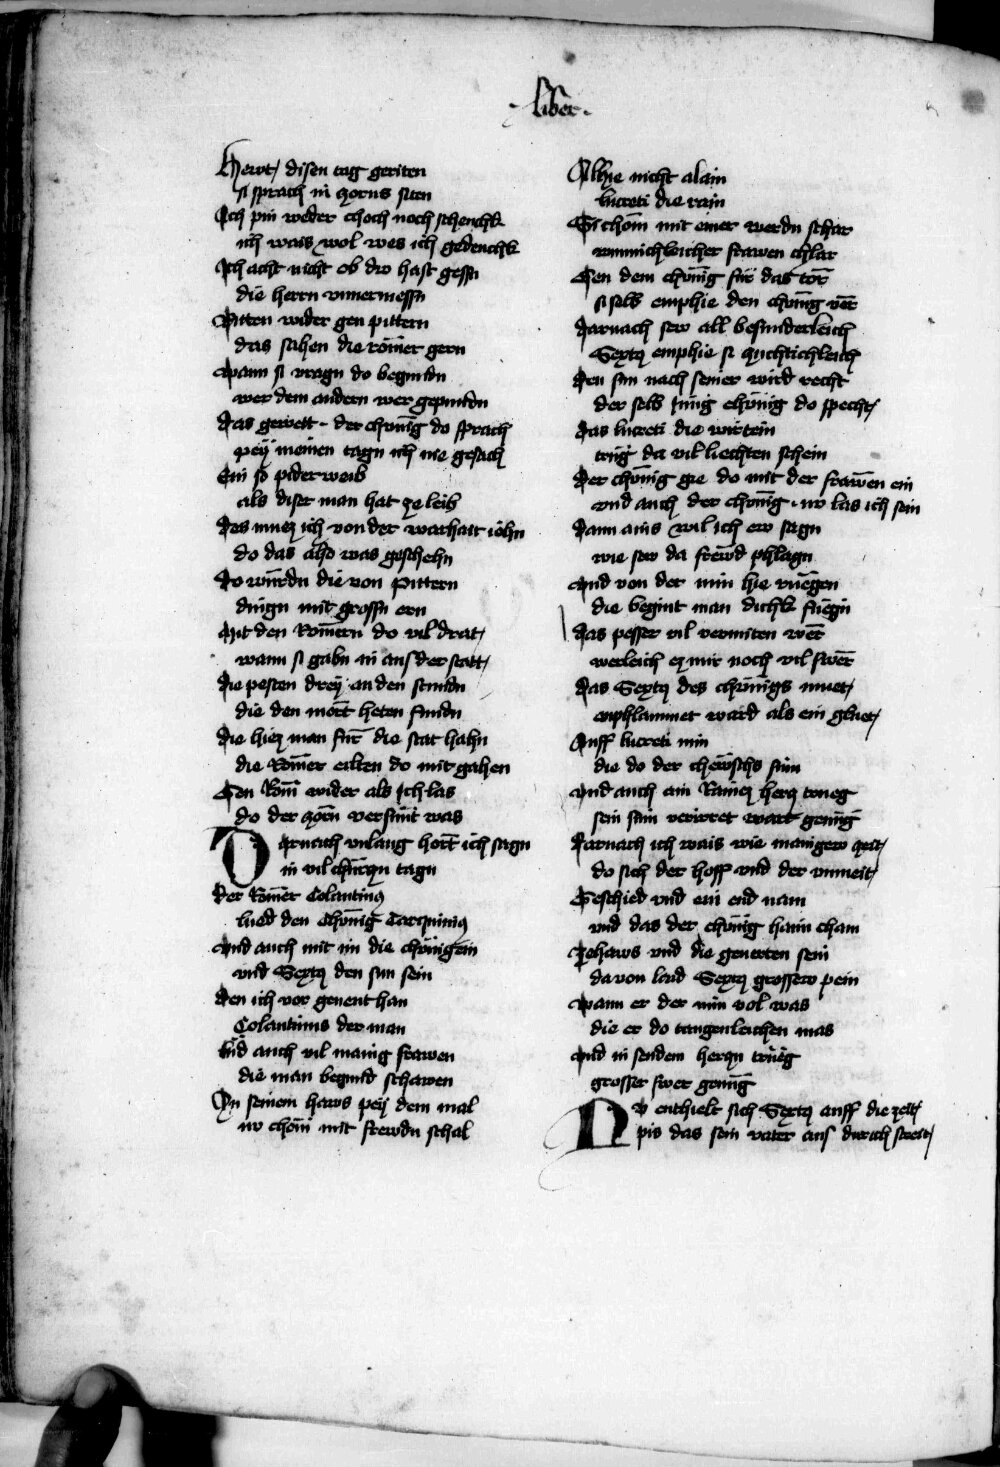 liber
Hewt disen tag geriten
si sprach in zorns siten
Ich pin weder choch noch schenchk
ich wais wol wes ich gedenchk
Ich acht nicht ob dw hast gessn
die herrn vnuermessn
Ritten wider gen pittern
das sahen die römer gern
Wann si vragn do begundn
wer dem andern wer gepundn
Das gewett der chünig do sprach
pey meinen tagn ich nie gesach
Ein so piderweib
als diser man hat ze leib
Des muez ich von der warhait iehn
do das also was geschehn
Do würdn die von Pittern
dingn mit grossn ern
Mit den Römern do vil drat
wann si gabn in aus der stat
Die pesten drey an den stundn
die den mort heten fundn
Die hiez man für die stat hahn
die Römer eilten do mit gahen
Gen Rom wider als ich las
do der zorn versünt was
Darnach vnlang hort ich sagn
in vil churczn tagn
Der Römer Colantinus
lued den chünig Tarquinius
Vnd auch mit im die chünigein
vnd Sextus den sun sein
Den ich vor genent han
Colantinus der man
Lud auch vil manig frawen
die man begund schawen
In seinem haws pey dem mal
nw chom mit frewdn schal
Alhie nicht alain
lucreti die rain
Si chom mit einer werdn schar
wunnichleicher frawen chlar
Gen dem chünig für das tor
si selb emphie den chünig vor
Darnach sew all besunderleich
Sextus emphie si zuchtichleich
Den sun nach seiner wird recht
der selb iung chünig do specht
Das lucreti die wirtein
trüg da vil liechten schein
Der chünig gie do mit der frawen ein
vnd auch der chünig nw las ich sein
Dann ains wil ich ew sagn
wie sew da frewd phlagn
Vnd von der min hie rüegen
die begint man dichk füegn
Das pesser vil vermiten wer
werleich ez mir noch vil swer
Das Sextus des chünigs muet
enphlammet ward als ein gluet
Auff lucreti min
die do der chewschs sinn
Vnd auch ain Rainez hercz trueg
sein sün verirret wart genüg
Darnach ich wais wie manigew zeit
do sich der hoff vnd der vnmeit
Geschied vnd ein end nam
vnd das der chünig haim cham
Zehaws vnd die geuerten sein
dauon laid Sextus grossew pein
Wann er der min vol was
die er do taugenleichen mas
Vnd in sendem herczn trüeg
grosser swer genüg
Nw enthielt sich Sextus auff die zeit
pis das sein vater aus durch streit